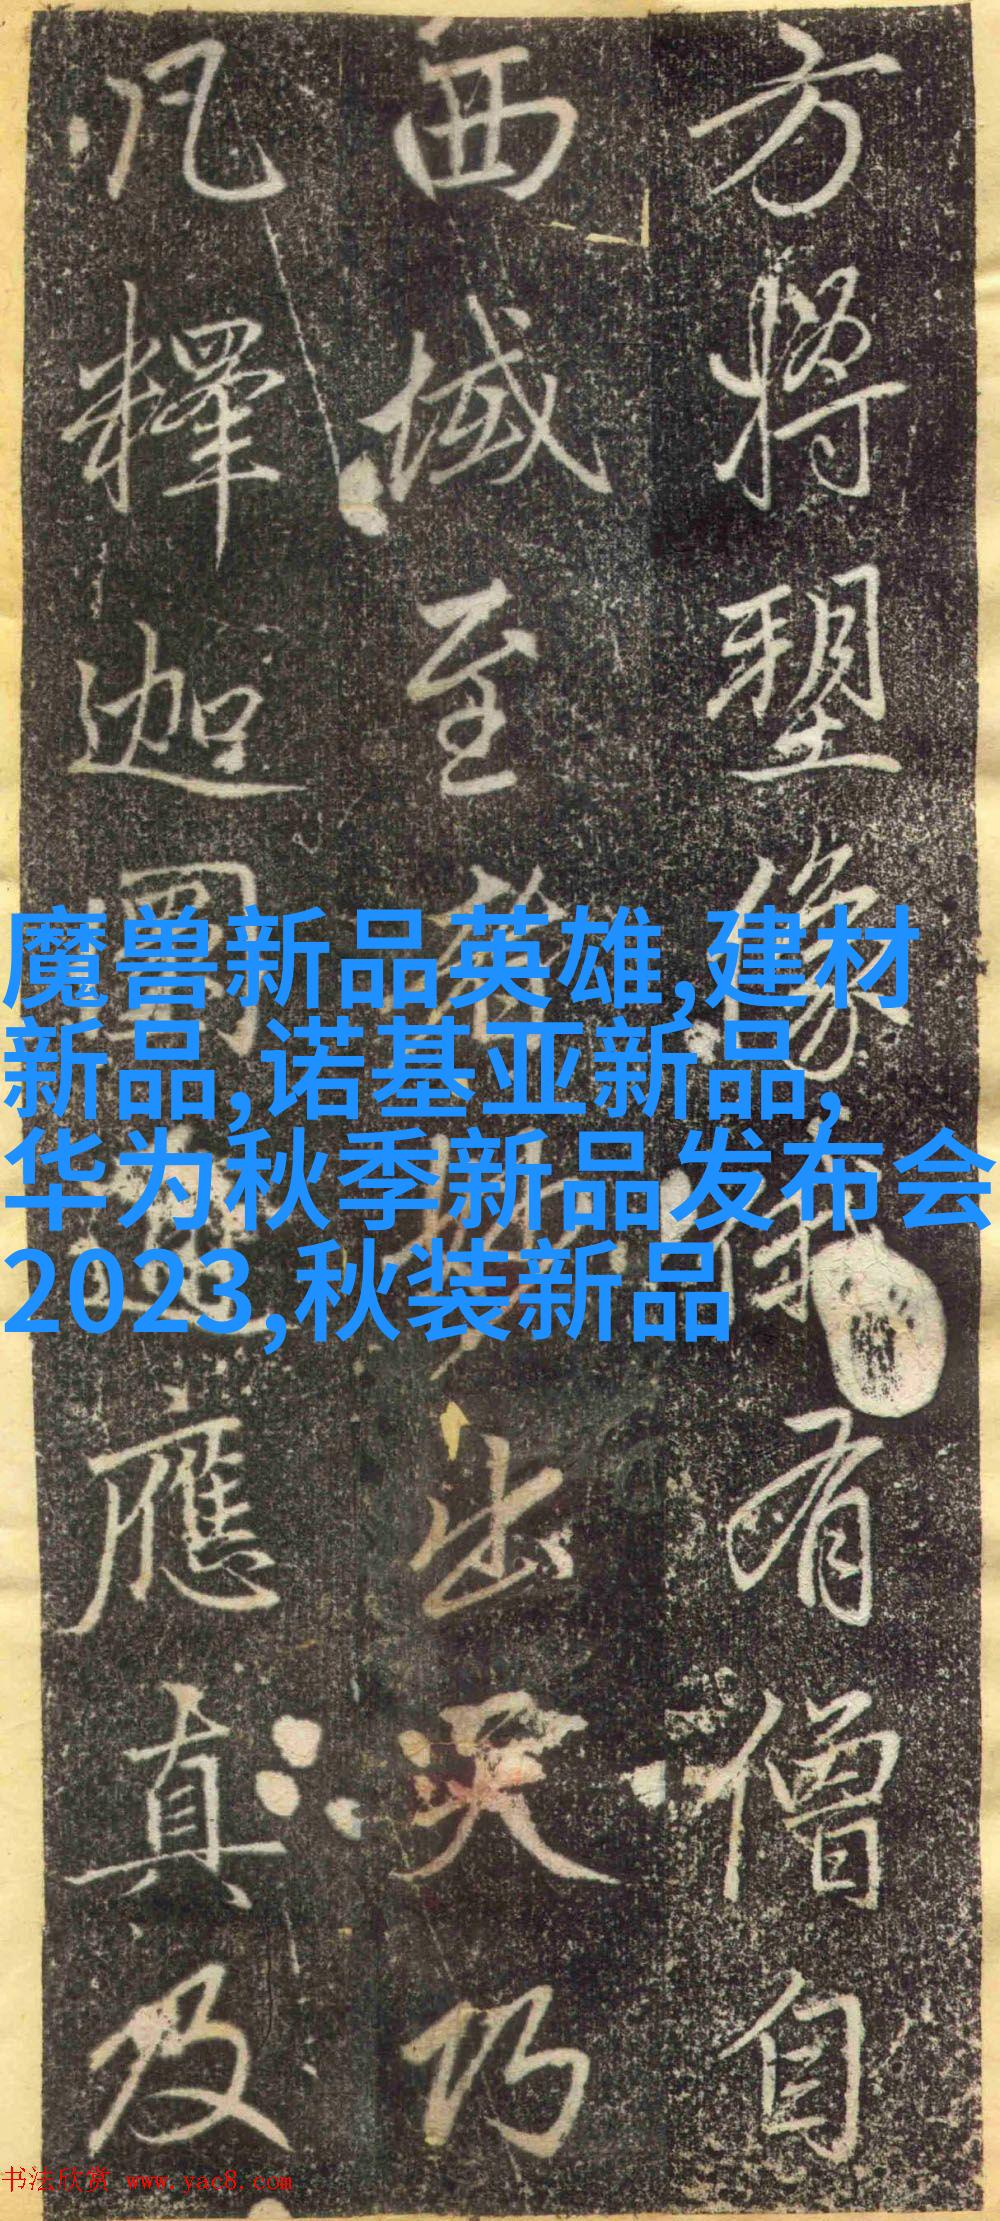 方將塑像有僧自
西域至者出天巧
凡釋迦應真及
魔兽新品英雄,建材
新品,诺基亚新品,
华为秋季新品发布会
2023,秋装新品
书法欣赏 www.yac8.com